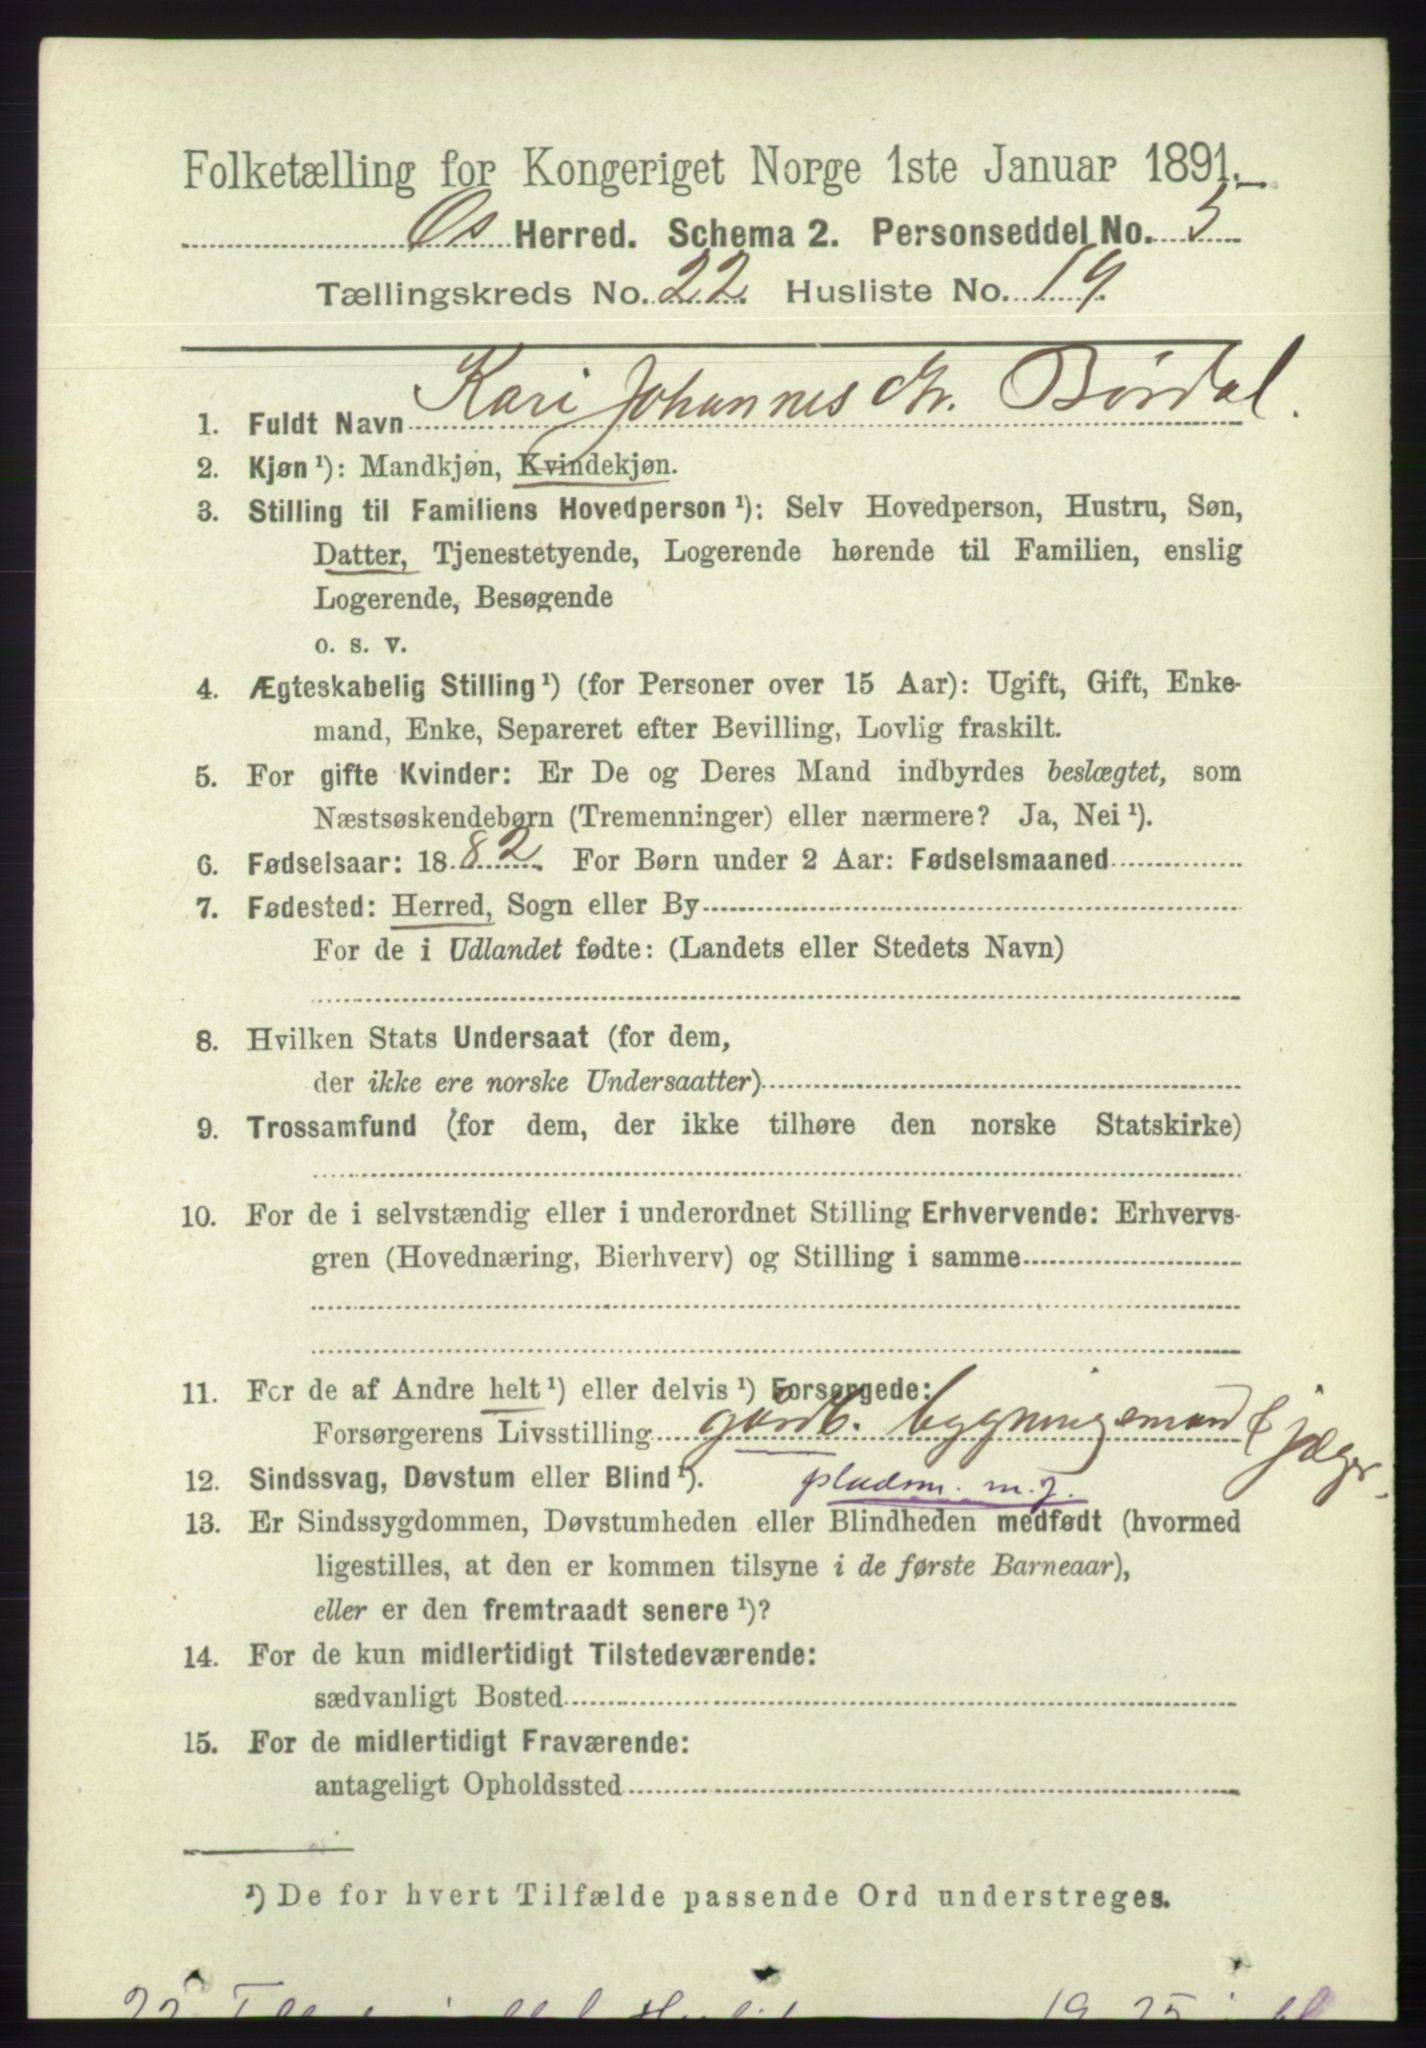 Folketælling for Kongeriget Norge 1ste Januar 1891.
Os Herred. Schema 2. Personseddel No. 5
Tællingskreds No. 22. Husliste No. 19.
1. Fuldt Navn Kari Johannes dtr. Børdal.
2. Kjøn ¹): Mandkjøn, Kvindekjøn.
3. Stilling til Familiens Hovedperson ¹): Selv Hovedperson, Hustru, Søn,
Datter, Tjenestetyende, Logerende hørende til Familien, enslig
Logerende, Besøgende
o. s. v.
4. Ægteskabelig Stilling ¹) (for Personer over 15 Aar): Ugift, Gift, Enke-
mand, Enke, Separeret efter Bevilling, Lovlig fraskilt.
5. For gifte Kvinder: Er De og Deres Mand indbyrdes beslægtet, som
Næstsøskendebørn (Tremenninger) eller nærmere? Ja, Nei ¹).
6. Fødselsaar: 1882. For Børn under 2 Aar: Fødselsmaaned
7. Fødested: Herred, Sogn eller By
For de i Udlandet fødte: (Landets eller Stedets Navn)
8. Hvilken Stats Undersaat (for dem,
der ikke ere norske Undersaatter)
9. Trossamfund (for dem, der ikke tilhøre den norske Statskirke)
10. For de i selvstændig eller i underordnet Stilling Erhvervende: Erhvervs-
gren (Hovednæring, Bierhverv) og Stilling i samme
11. For de af Andre helt ¹) eller delvis ¹) Forsørgede:
Forsørgerens Livsstilling gårdb. bygningsmand & jæger.
12. Sindssvag, Døvstum eller Blind ¹). pladsm. m. j.
13. Er Sindssygdommen, Døvstumheden eller Blindheden medfødt (hvormed
ligestilles, at den er kommen tilsyne i de første Barneaar),
eller er den fremtraadt senere ¹)?
14. For de kun midlertidigt Tilstedeværende:
sædvanligt Bosted
15. For de midlertidigt Fraværende:
antageligt Opholdssted
¹) De for hvert Tilfælde passende Ord understreges.